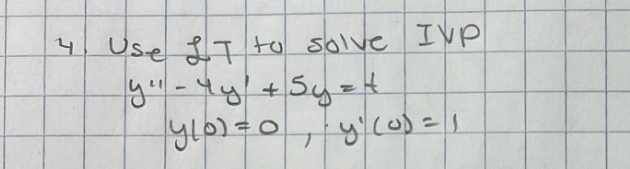 4. Use ℒT to solve IVP
y'' - 4y' + 5y = t
y(0) = 0, y'(0) = 1